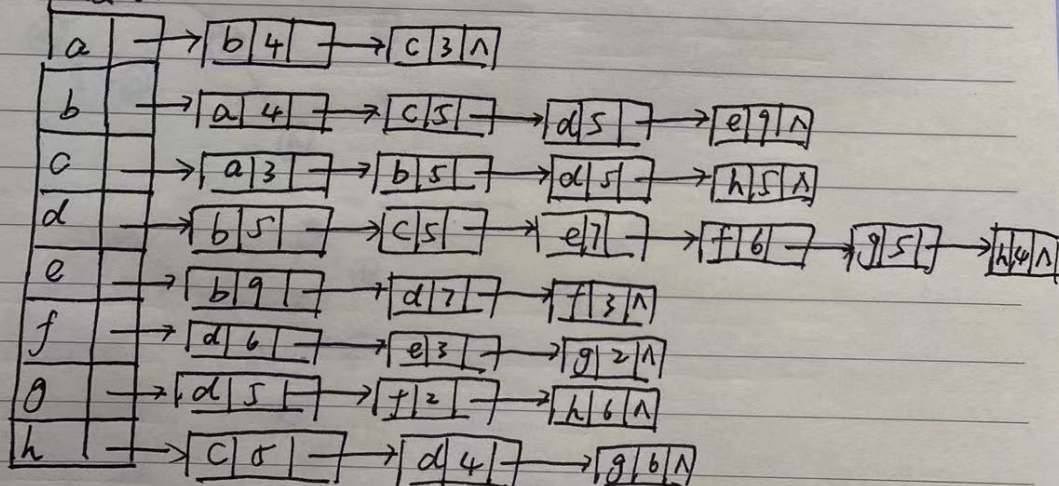 a → b 4 → c 3 ∧
b → a 4 → c 5 → d 5 → e 9 ∧
c → a 3 → b 5 → d 5 → h 5 ∧
d → b 5 → c 5 → e 7 → f 6 → g 5 → h 4 ∧
e → b 9 → d 7 → f 3 ∧
f → d 6 → e 3 → g 2 ∧
g → d 5 → f 2 → h 6 ∧
h → c 5 → d 4 → g 6 ∧